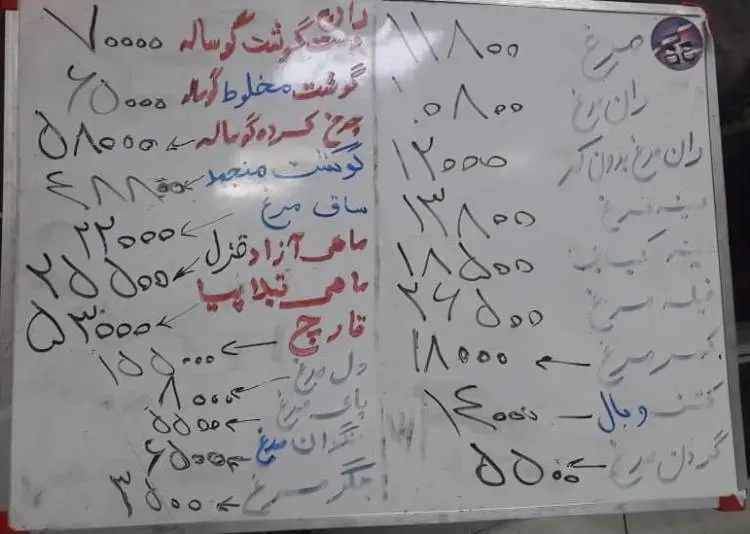 مرغ ۱۱۸۰۰
ران مرغ ۱۰۸۰۰
ران مرغ بدون کمر ۱۲۰۰۰
سینه مرغ ۱۳۸۰۰
سینه کبابی ۱۸۵۰۰
فیله مرغ ۲۶۵۰۰
مرغ ← ۱۸۰۰۰
کتف و بال – ۱۴۰۰۰
گردن مرغ ← ۵۵۰۰
ران
دست گوشت گوساله ۷۰۰۰۰
گوشت مخلوط گوساله ۶۵۰۰۰
چرخ کرده گوساله ← ۵۸۰۰۰
گوشت منجمد ۴۸۸۰۰
ساق مرغ
ماهی آزاد قزل ← ۲۲۰۰۰
ماهی تیلاپیا ← ۲۵۵۰۰
قارچ ← ۵۳۰۰۰
۱۵۵۰۰۰
دل مرغ ← ۸۰۰۰
پای مرغ ۵۵۰۰
سنگدان مرغ ← ۶۵۰۰
جگر مرغ ← ۳۵۰۰